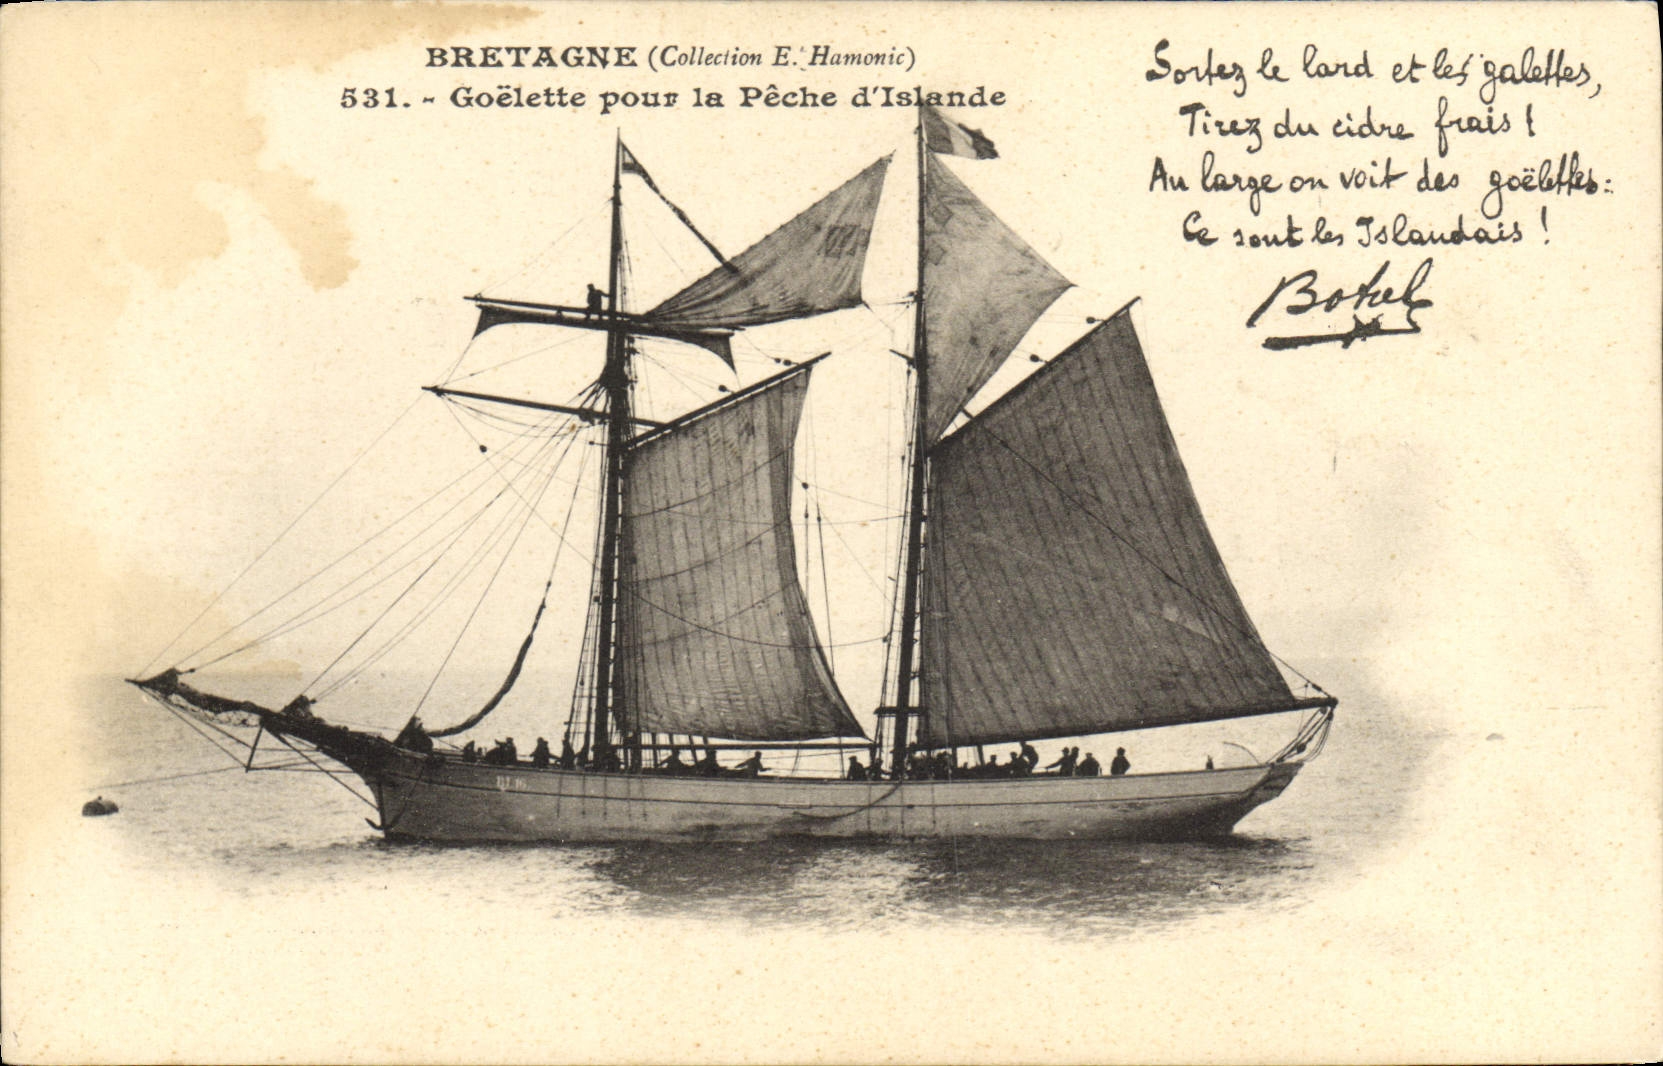 BRETAGNE (Collection E. Hamonic)
531. - Goëlette pour la Pêche d'Islande
Sortez le lard et les galettes,
Tirez du cidre frais !
Au large on voit des goëlettes :
Ce sont les Islandais !
Botrel